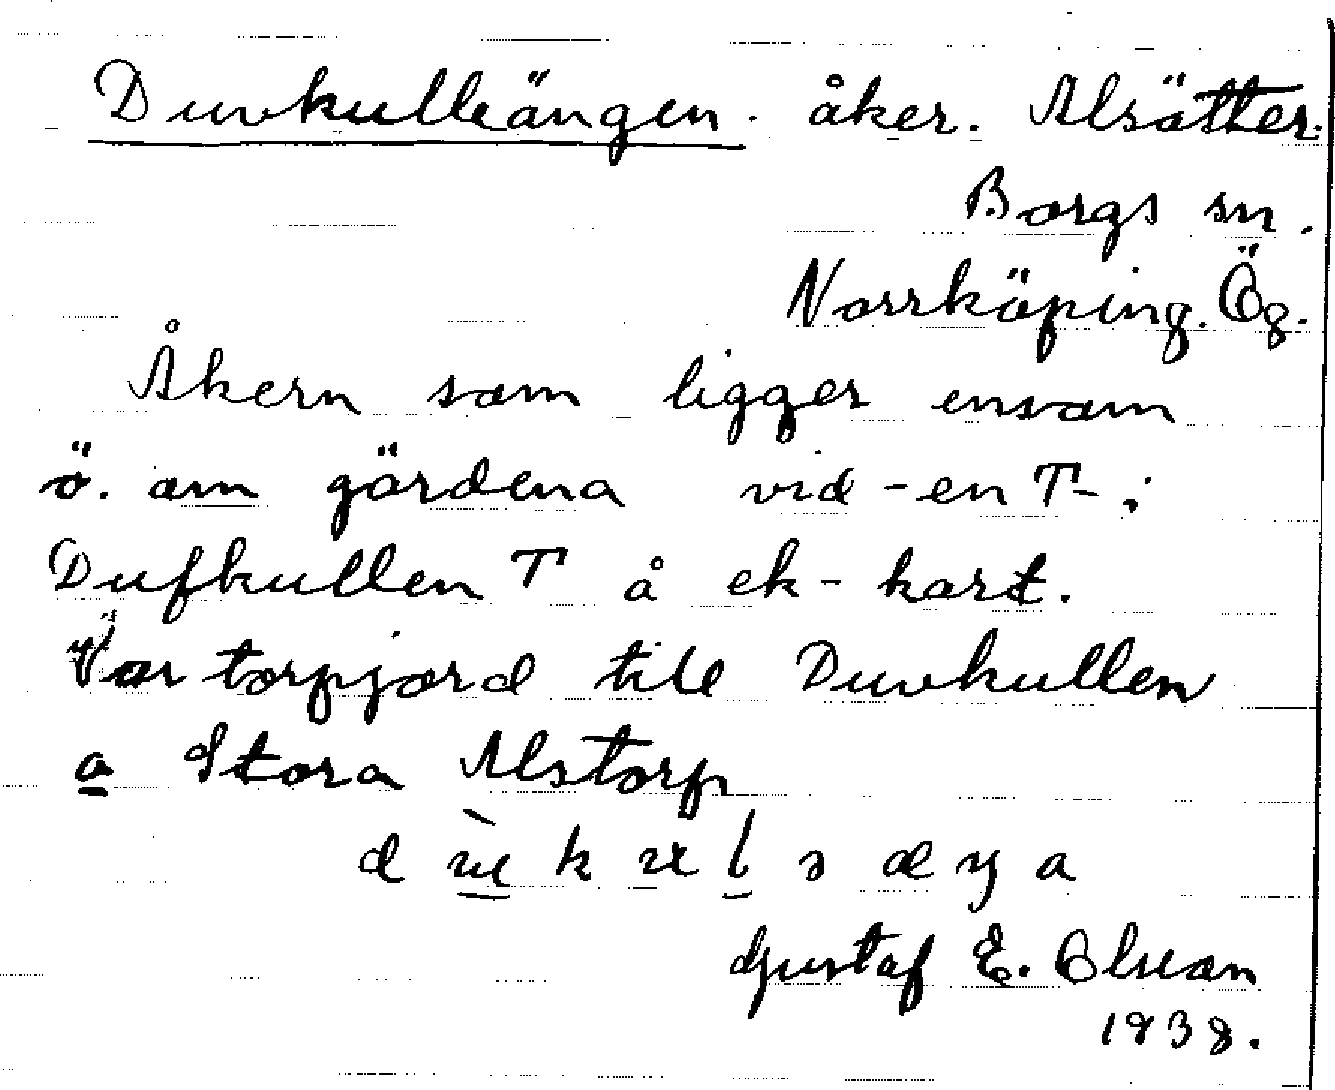 Duvkulleängen. åker. Alsätter.
Borgs sn.
Norrköping. Ög.
Åkern som ligger ensam
ö. om gärdena vid -en T- ;
Dufkullen T å ek-kart.
Var torpjord till Duvkullen
a Stora Alstorp
Gustaf E. Olsson
1938.